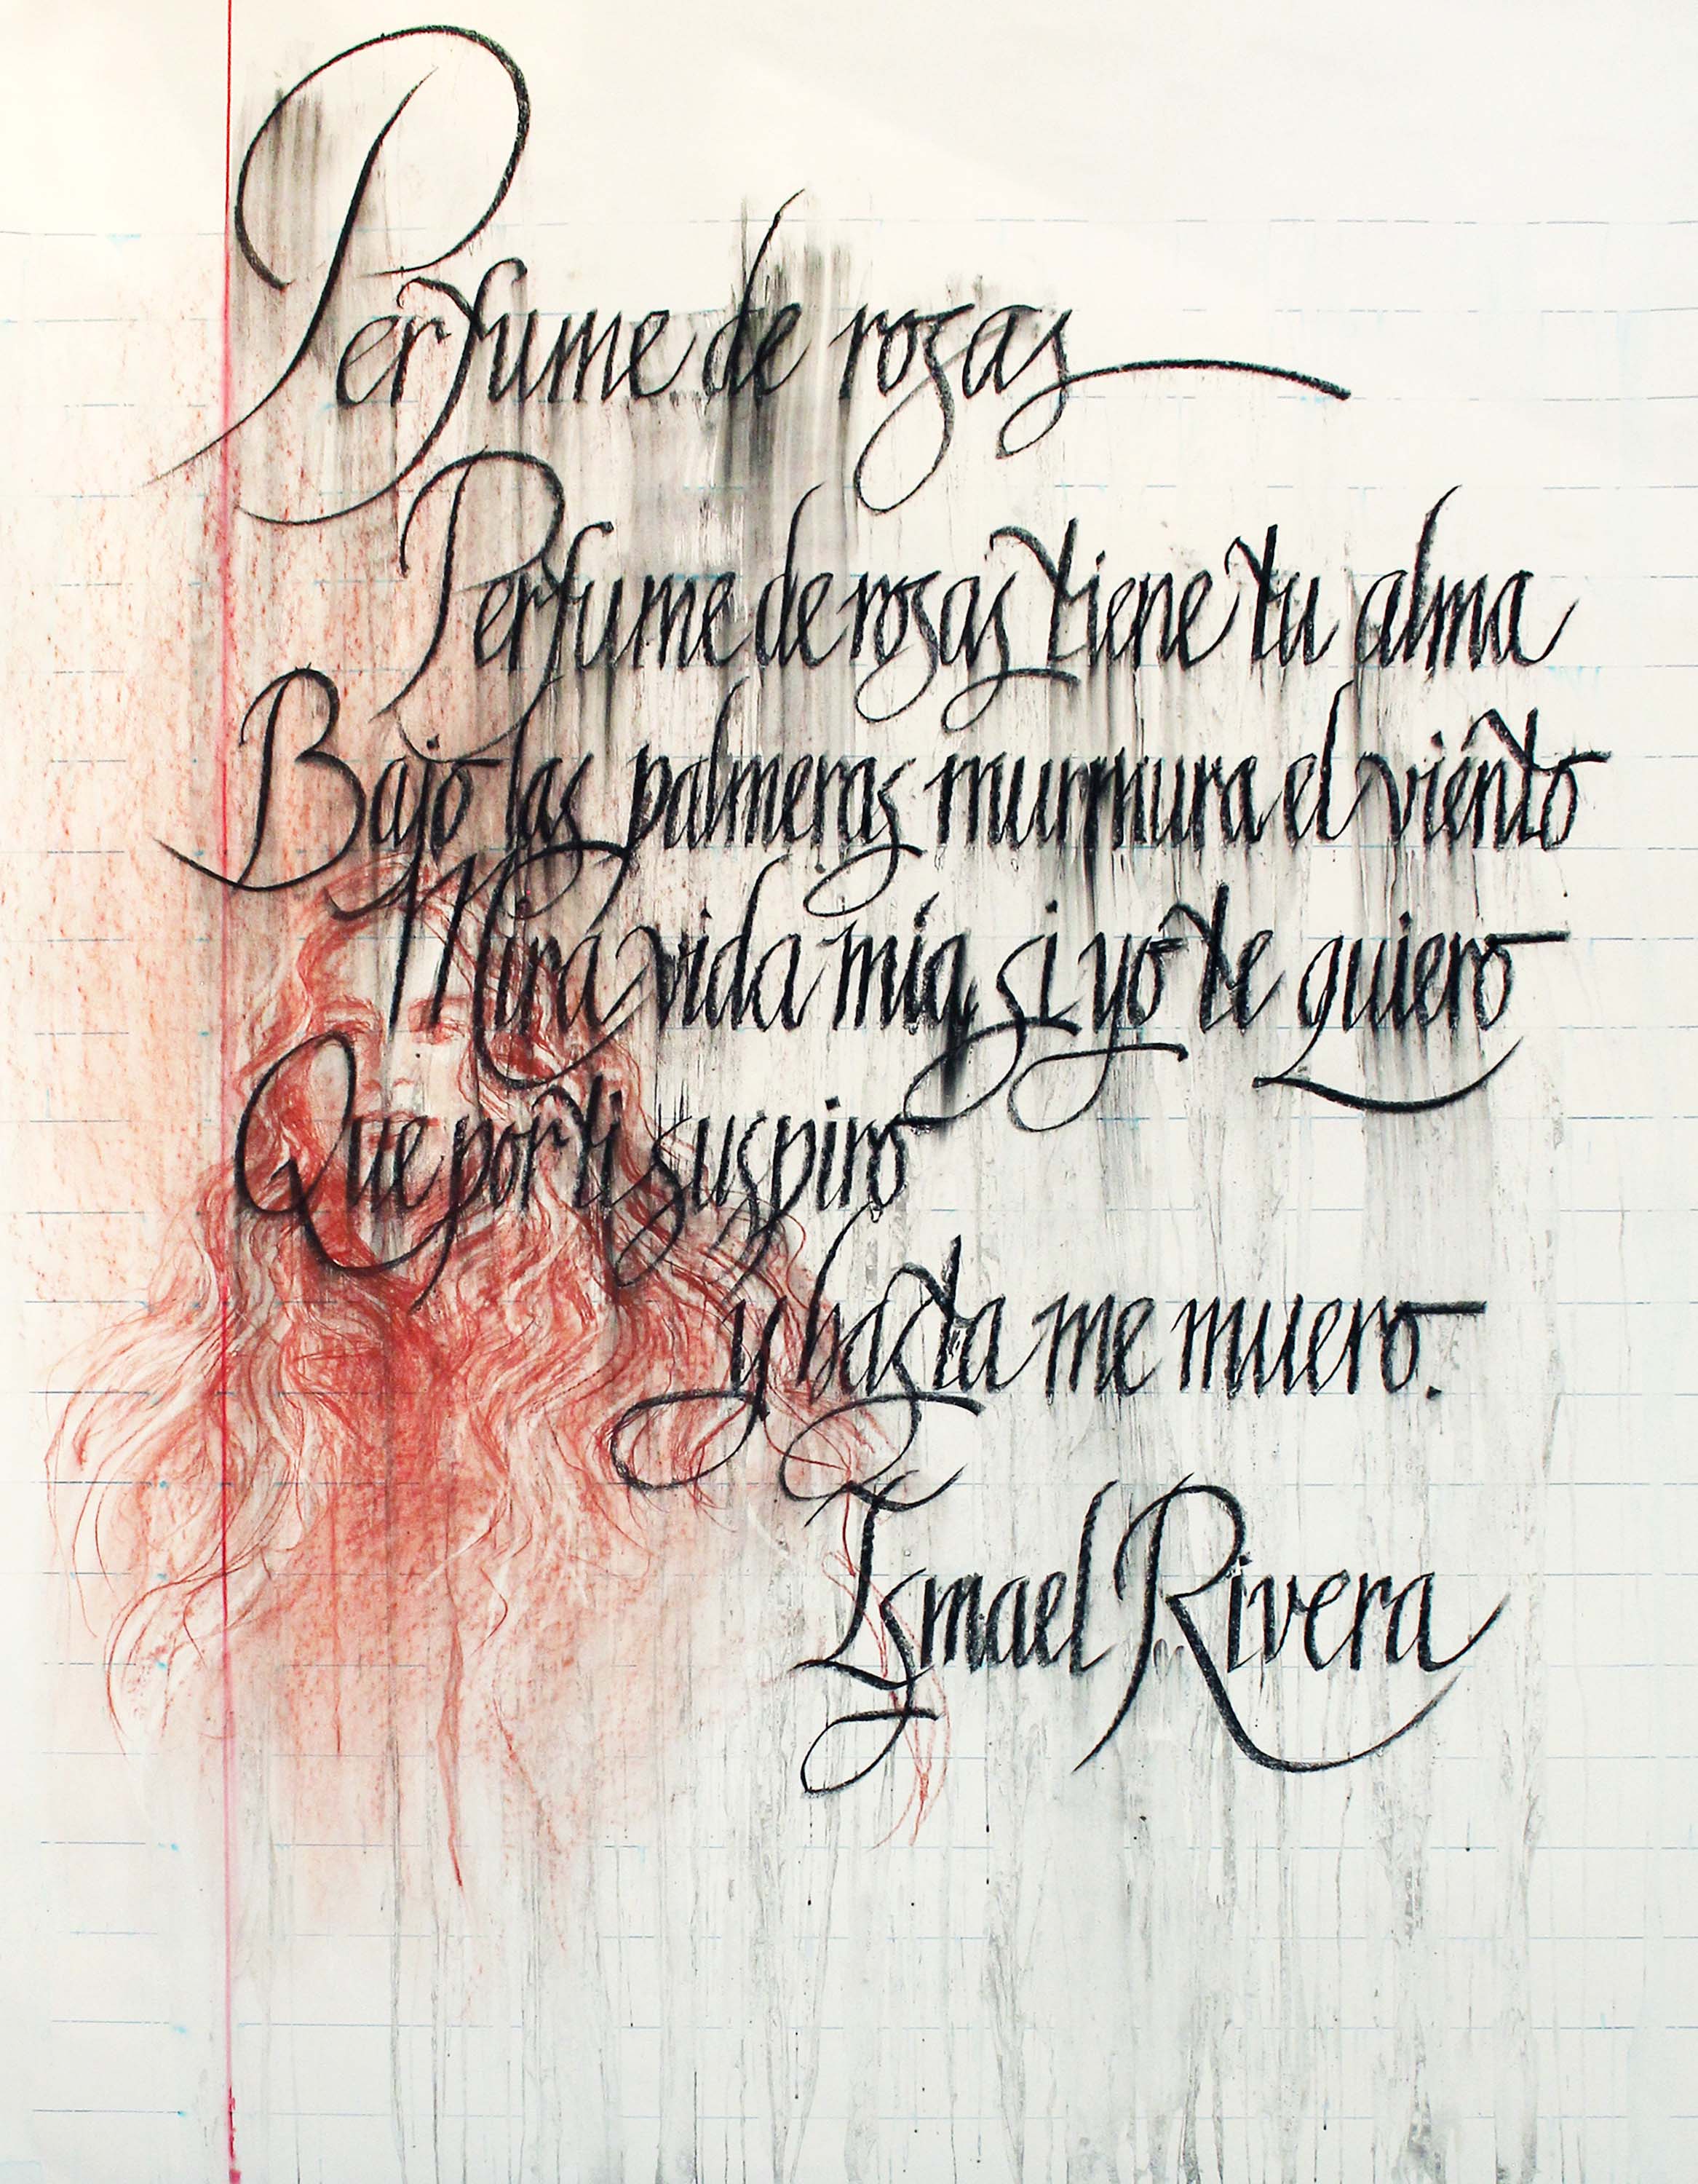 Perfume de rosas
Perfume de rosas tiene tu alma
Bajo las palmeras murmura el viento
Mira vida mía, si yo te quiero
Que por ti suspiro
y hasta me muero.
Ismael Rivera